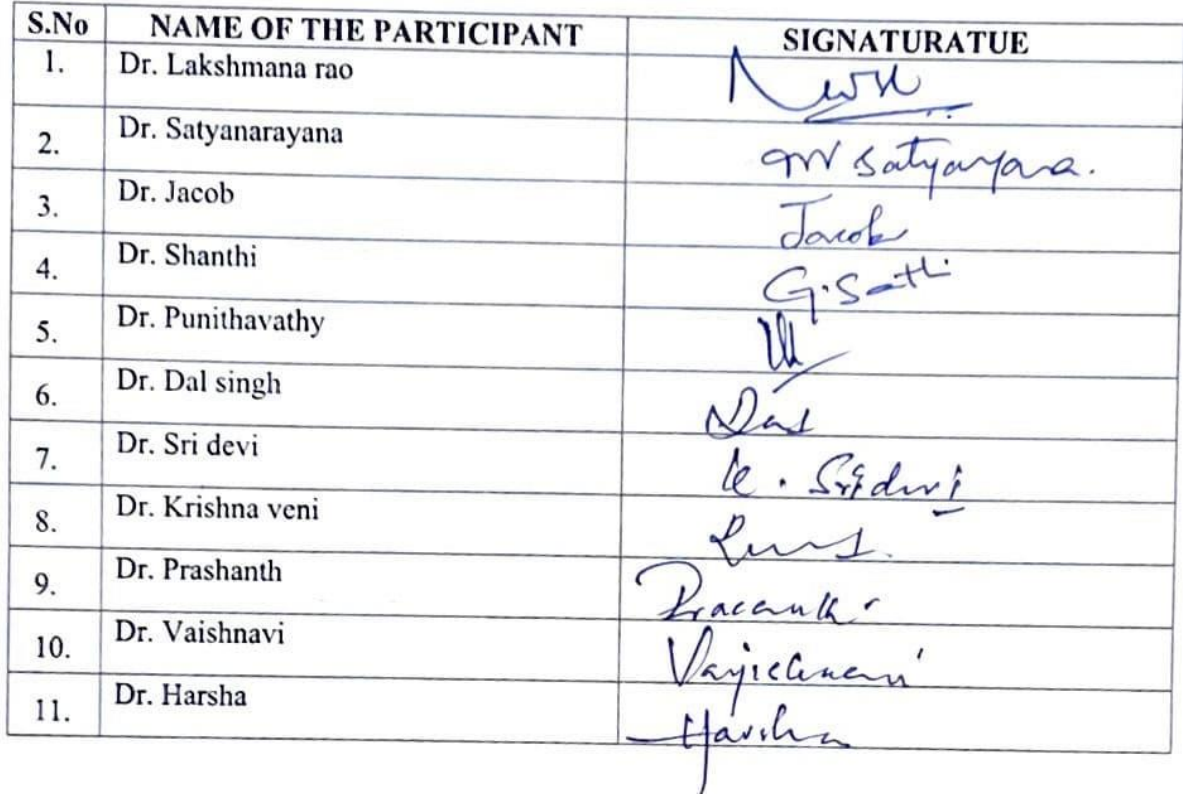 S.No NAME OF THE PARTICIPANT SIGNATURATUE
1. Dr. Lakshmana rao
2. Dr. Satyanarayana
3. Dr. Jacob Jacob
4. Dr. Shanthi
5. Dr. Punithavathy
6. Dr. Dal singh
7. Dr. Sri devi K. Sridevi
8. Dr. Krishna veni
9. Dr. Prashanth
10. Dr. Vaishnavi
11. Dr. Harsha Harsha